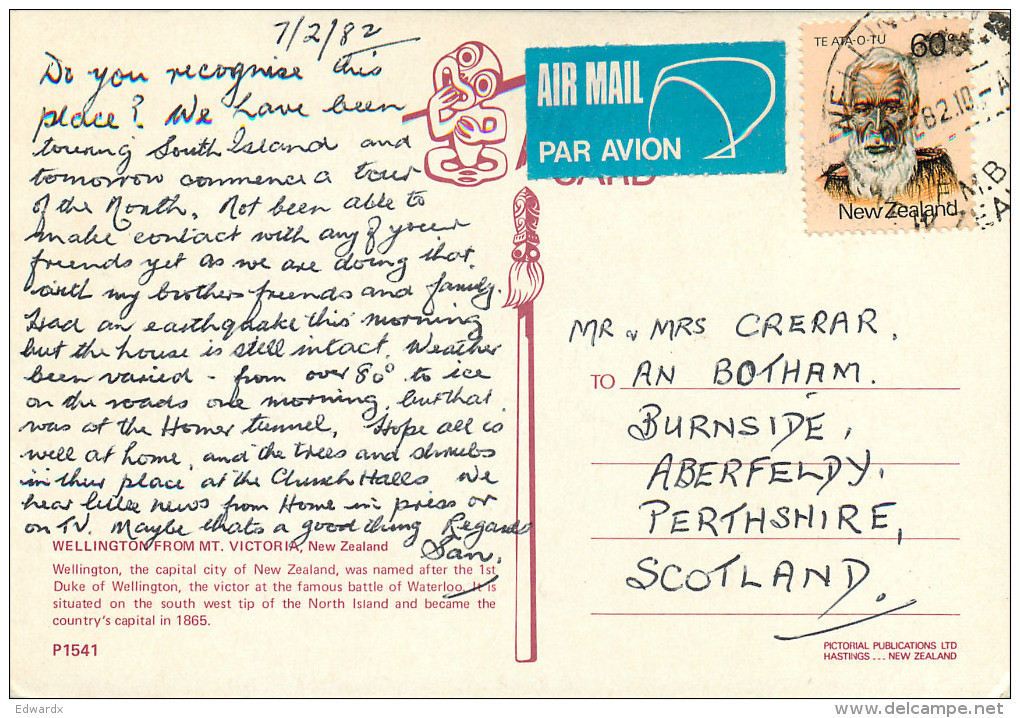 7/2/82
Do you recognise this
place? We have been
touring South Island and
tomorrow commence a tour
of the North. Not been able to
make contact with any of your
friends yet as we are doing that
with my brothers friends and family.
Had an earthquake this morning
but the house is still intact. Weather
been varied - from over 80° to ice
on the roads one morning, but that
was at the Homer tunnel. Hope all is
well at home, and the trees and shrubs
in their place at the Church Halls. We
hear little news from Home in press or
on TV. Maybe thats a good thing Regards
WELLINGTON FROM MT. VICTORIA, New Zealand
Wellington, the capital city of New Zealand, was named after the 1st
Duke of Wellington, the victor at the famous battle of Waterloo. It is
situated on the south west tip of the North Island and became the
country's capital in 1865.
P1541
AIR MAIL
PAR AVION
CARD
TE ATA-O-TU
60c
New Zealand
MR & MRS CRERAR,
TO AN BOTHAM.
BURNSIDE,
ABERFELDY.
PERTHSHIRE,
SCOTLAND.
PICTORIAL PUBLICATIONS LTD
HASTINGS ... NEW ZEALAND
Edwardx
delcampe.net